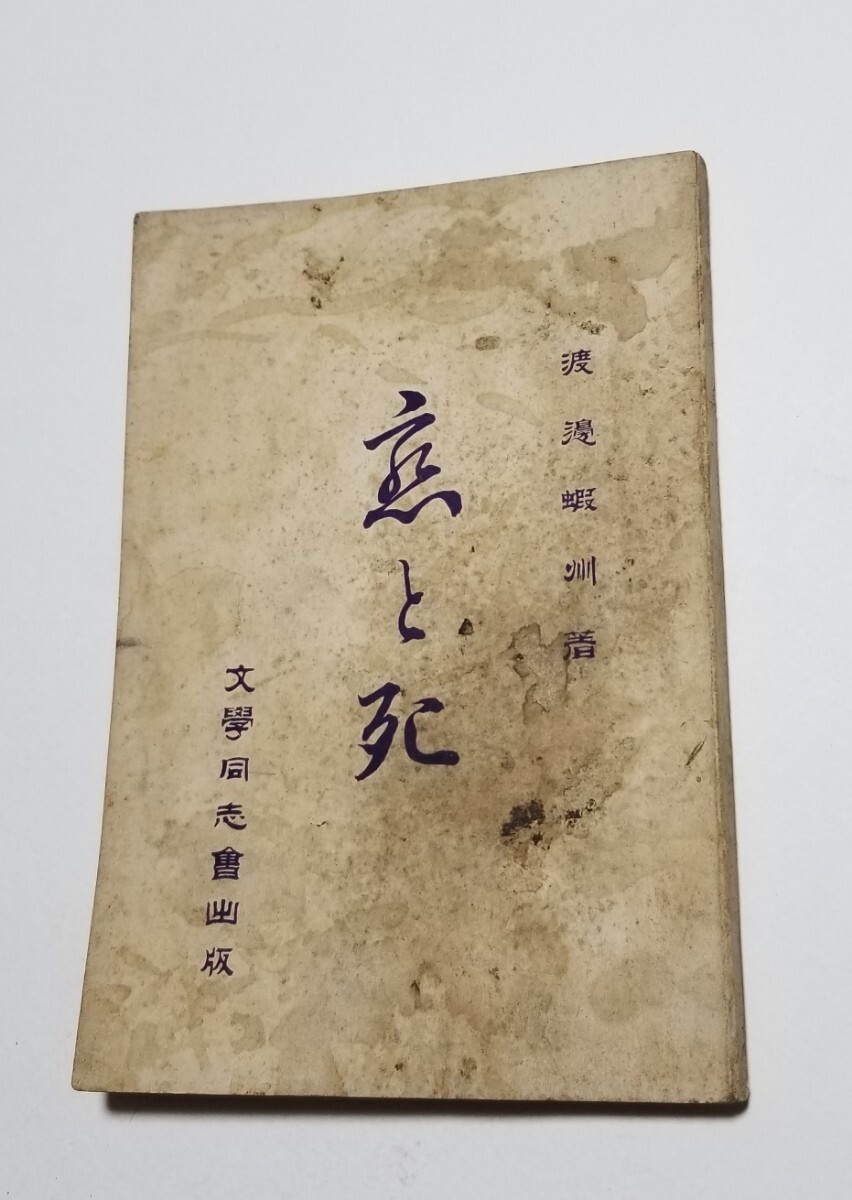 渡邊蝦州著
恋と死
文學同志會出版